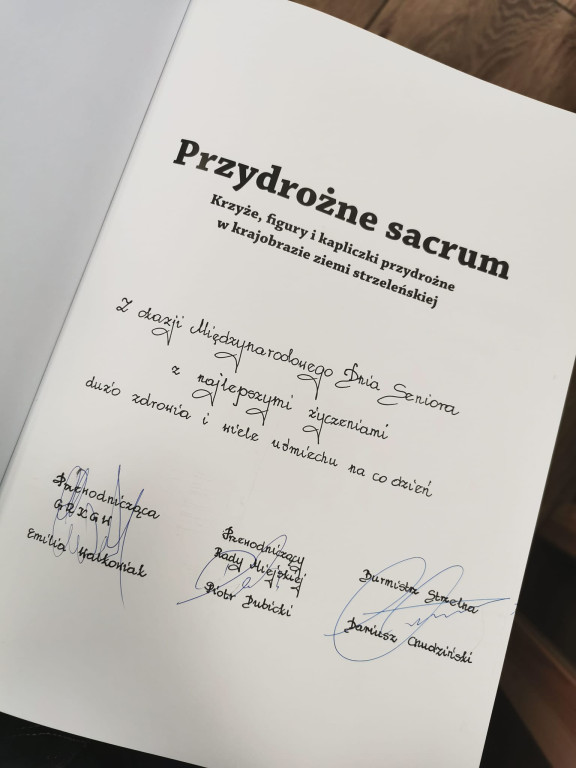 Przydrożne sacrum
Krzyże, figury i kapliczki przydrożne
w krajobrazie ziemi strzeleńskiej
Z okazji Międzynarodowego Dnia Seniora
z najlepszymi życzeniami
dużo zdrowia i wiele uśmiechu na co dzień
Przewodnicząca
GRKGW
Emilia Walkowiak
Przewodniczący
Rady Miejskiej
Piotr Dubicki
Burmistrz Strzelna
Dariusz Chudziński